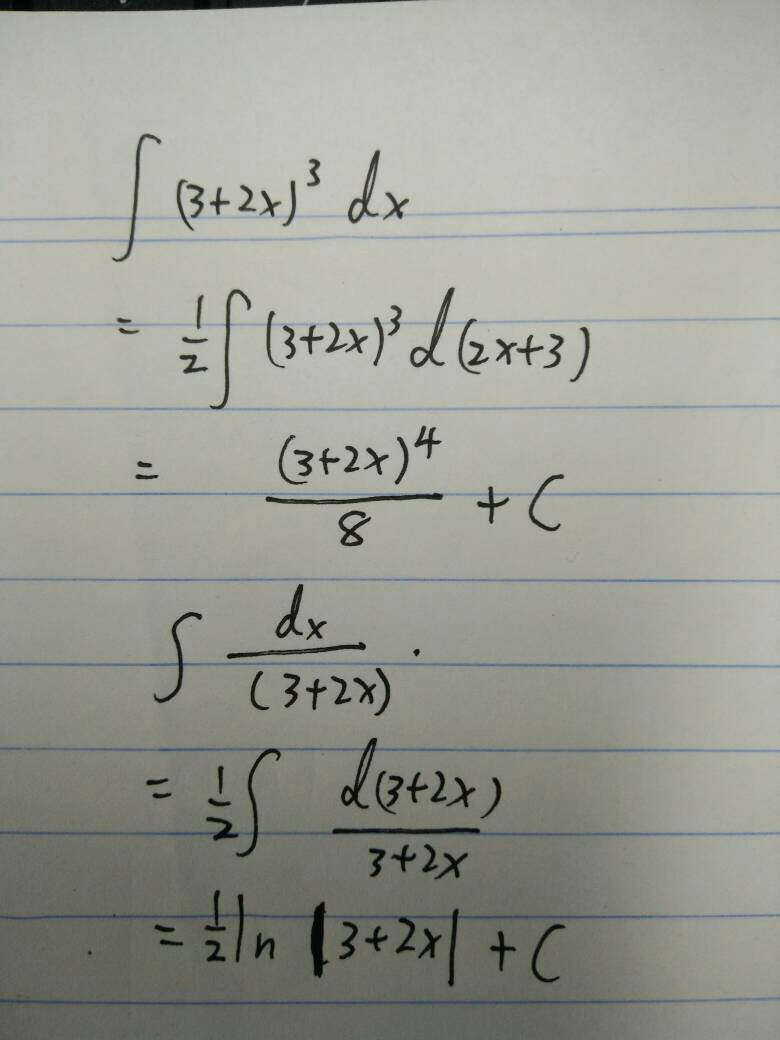 ∫ (3+2x)³ dx
= 1/2 ∫ (3+2x)³ d(2x+3)
= (3+2x)⁴/8 + C
∫ dx/(3+2x) .
= 1/2 ∫ d(3+2x)/3+2x
= 1/2 ln |3+2x| + C